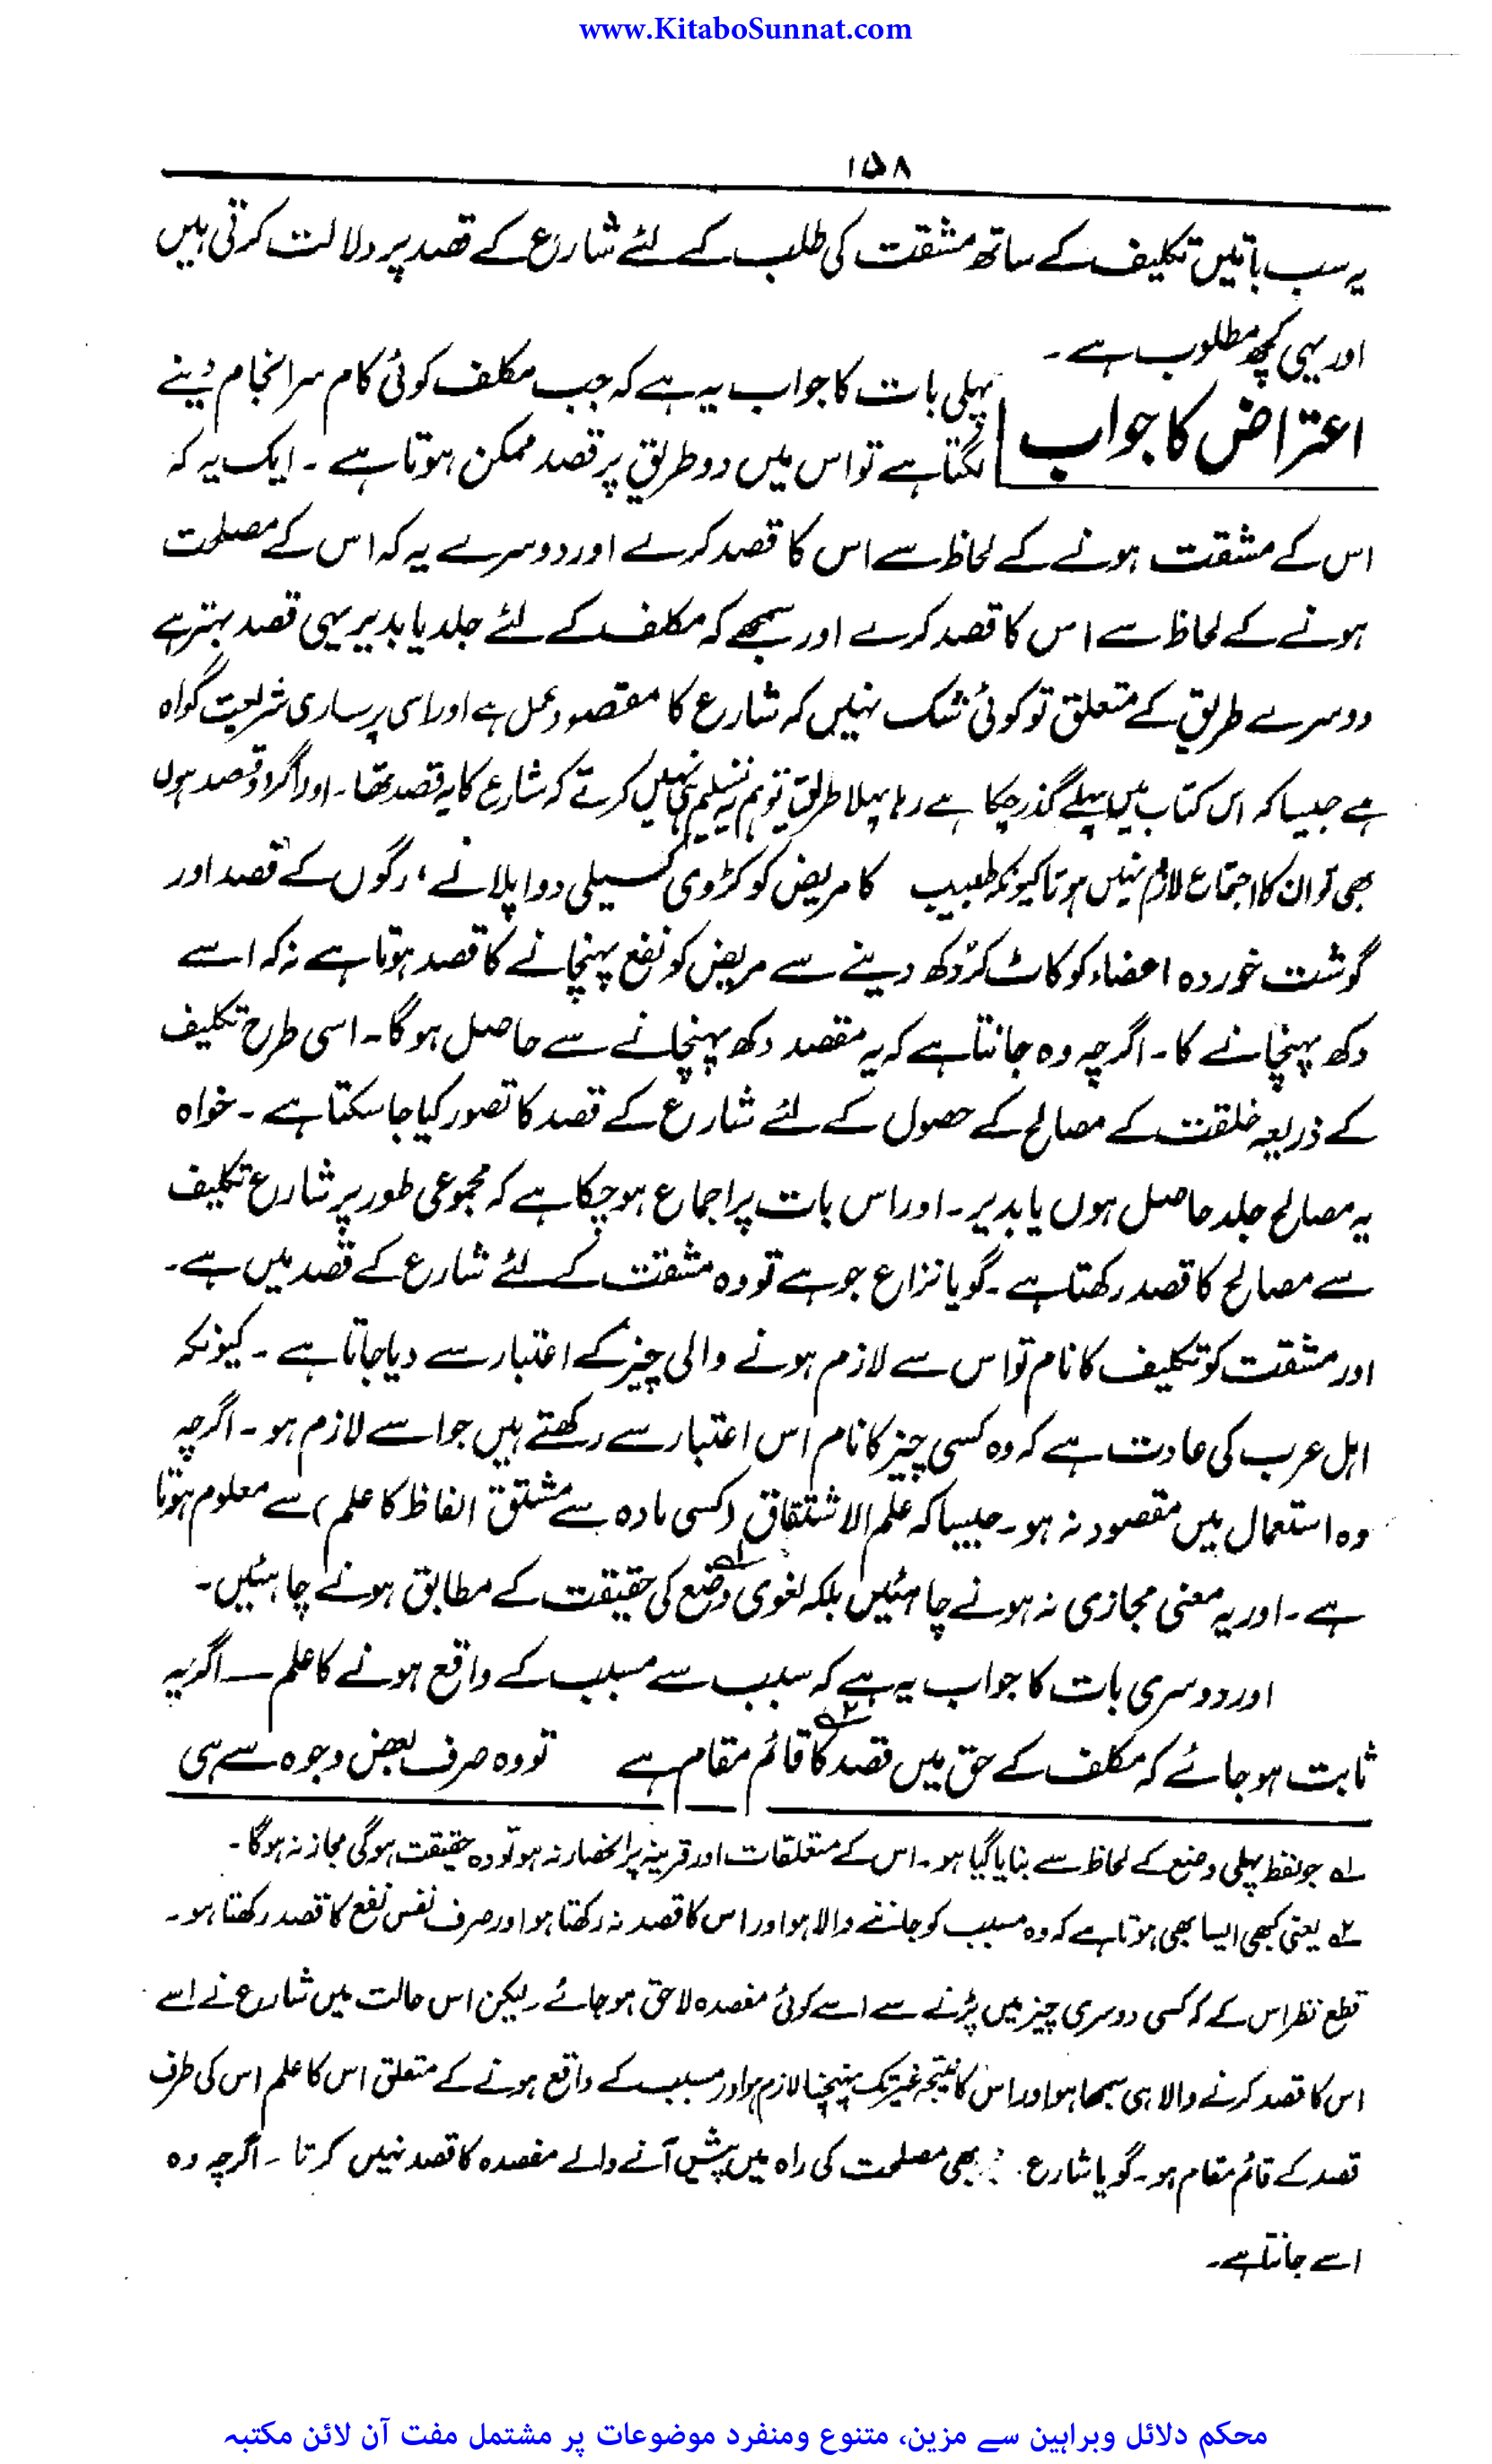 www.KitaboSunnat.com
۱۵۸
یہ سب باتیں تکلیف کے ساتھ مشقت کی طلب کے لئے شارع کے قصد پر دلالت کرتی ہیں
اور یہی کچھ مطلوب ہے۔
اعتراض کا جواب
پہلی بات کا جواب یہ ہے کہ جب مکلف کوئی کام سرانجام دینے
لگتا ہے تو اس میں دو طریق پر قصد ممکن ہوتا ہے ۔ ایک یہ کہ
اس کے مشقت ہونے کے لحاظ سے اس کا قصد کرے اور دوسرے یہ کہ اس کے مصلحت
ہونے کے لحاظ سے اس کا قصد کرے اور سمجھے کہ مکلف کے لئے جلد یا بدیر یہی قصد بہتر ہے
دوسرے طریق کے متعلق تو کوئی شک نہیں کہ شارع کا مقصود عمل ہے اور اسی پر ساری شریعت گواہ
ہے جیسا کہ اس کتاب میں پہلے گذر چکا ہے رہا پہلا طریق تو ہم یہ تسلیم ہی نہیں کرتے کہ شارع کا یہ قصد تھا۔ اور اگر دو قصد ہوں
بھی تو ان کا اجتماع لازم نہیں ہوتا کیونکہ طبیب کا مریض کو کڑوی کسیلی دوا پلانے ، رگوں کے قصد اور
گوشت خوردہ اعضاء کو کاٹ کر دکھ دینے سے مریض کو نفع پہنچانے کا قصد ہوتا ہے نہ کہ اسے
دکھ پہنچانے کا۔ اگرچہ وہ جانتا ہے کہ یہ مقصد دکھ پہنچانے سے حاصل ہوگا۔ اسی طرح تکلیف
کے ذریعہ خلقت کے مصالح کے حصول کے لئے شارع کے قصد کا تصور کیا جا سکتا ہے ۔ خواہ
یہ مصالح جلد حاصل ہوں یا بدیر۔ اور اس بات پر اجماع ہو چکا ہے کہ مجموعی طور پر شارع تکلیف
سے مصالح کا قصد رکھتا ہے ۔ گویا نزاع جو ہے تو وہ مشقت کے لئے شارع کے قصد میں ہے۔
اور مشقت کو تکلیف کا نام تو اس سے لازم ہونے والی چیز کے اعتبار سے دیا جاتا ہے ۔ کیونکہ
اہل عرب کی عادت ہے کہ وہ کسی چیز کا نام اس اعتبار سے رکھتے ہیں جو اسے لازم ہو ۔ اگرچہ
وہ استعمال میں مقصود نہ ہو۔ جیسا کہ علم الاشتقاق (کسی مادہ سے مشتق الفاظ کا علم) سے معلوم ہوتا
ہے ۔ اور یہ معنی مجازی نہ ہونے چاہئیں بلکہ لغوی وضع لہ کی حقیقت کے مطابق ہونے چاہئیں۔
اور دوسری بات کا جواب یہ ہے کہ سبب سے مسبب کے واقع ہونے کا علم — اگر یہ
ثابت ہو جائے کہ مکلف کے حق میں قصد کا قائم مقام ہے ۲ تو وہ صرف بعض وجوہ سے ہی
۱؎ جو لفظ پہلی وضع کے لحاظ سے بنایا گیا ہو۔ اس کے متعلقات اور قرینہ پر انحصار نہ ہو تو وہ حقیقت ہوگی مجاز نہ ہوگا ۔
۲؎ یعنی کبھی ایسا بھی ہوتا ہے کہ وہ مسبب کو جاننے والا ہو اور اس کا قصد نہ رکھتا ہو اور صرف نفس نفع کا قصد رکھتا ہو۔
قطع نظر اس کے کہ کسی دوسری چیز میں پڑنے سے اسے کوئی مفسدہ لاحق ہو جائے ۔ لیکن اس حالت میں شارع نے اسے
اس کا قصد کرنے والا ہی سمجھا ہو اور اس کا نتیجہ غیر تک پہنچنا لازم ہو اور مسبب کے واقع ہونے کے متعلق اس کا علم اس کی طرف
قصد کے قائم مقام ہو۔ گویا شارع بھی مصلحت کی راہ میں پیش آنے والے مفسدہ کا قصد نہیں کرتا ۔ اگرچہ وہ
اسے جانتا ہے۔
محکم دلائل وبراہین سے مزین، متنوع ومنفرد موضوعات پر مشتمل مفت آن لائن مکتبہ